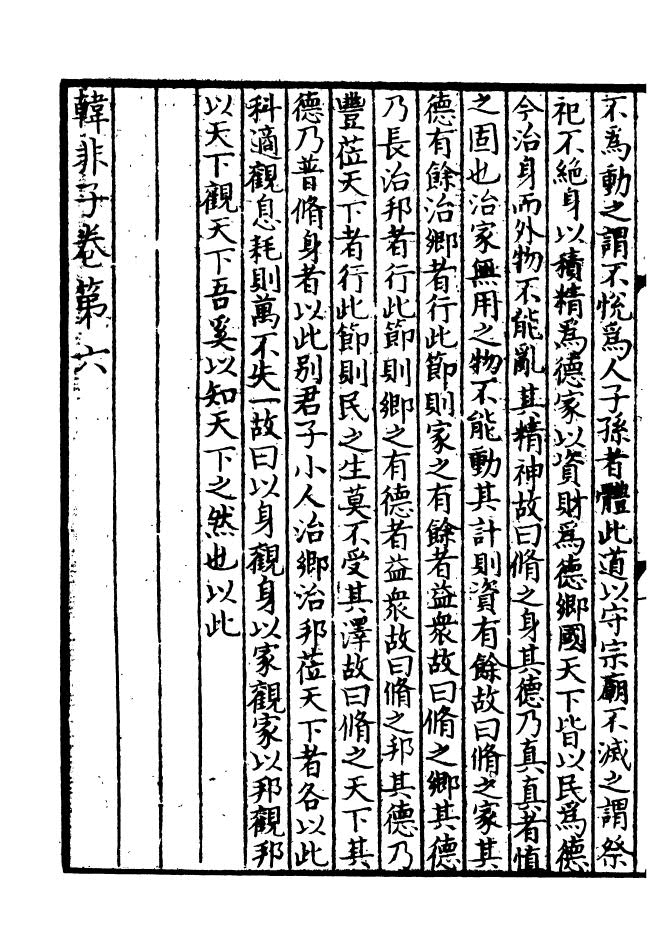 不爲動之謂不悅爲人子孫者體此道以守宗廟不滅之謂祭
祀不絶身以積精爲德家以資財爲德鄉國天下皆以民爲德
今治身而外物不能亂其精神故曰脩之身其德乃真真者慎
之固也治家無用之物不能動其計則資有餘故曰脩之家其
德有餘治鄉者行此節則家之有餘者益衆故曰脩之鄉其德
乃長治邦者行此節則鄉之有德者益衆故曰脩之邦其德乃
豐莅天下者行此節則民之生莫不受其澤故曰脩之天下其
德乃普脩身者以此别君子小人治鄉治邦莅天下者各以此
科適觀息耗則萬不失一故曰以身觀身以家觀家以邦觀邦
以天下觀天下吾奚以知天下之然也以此
韓非子卷第六